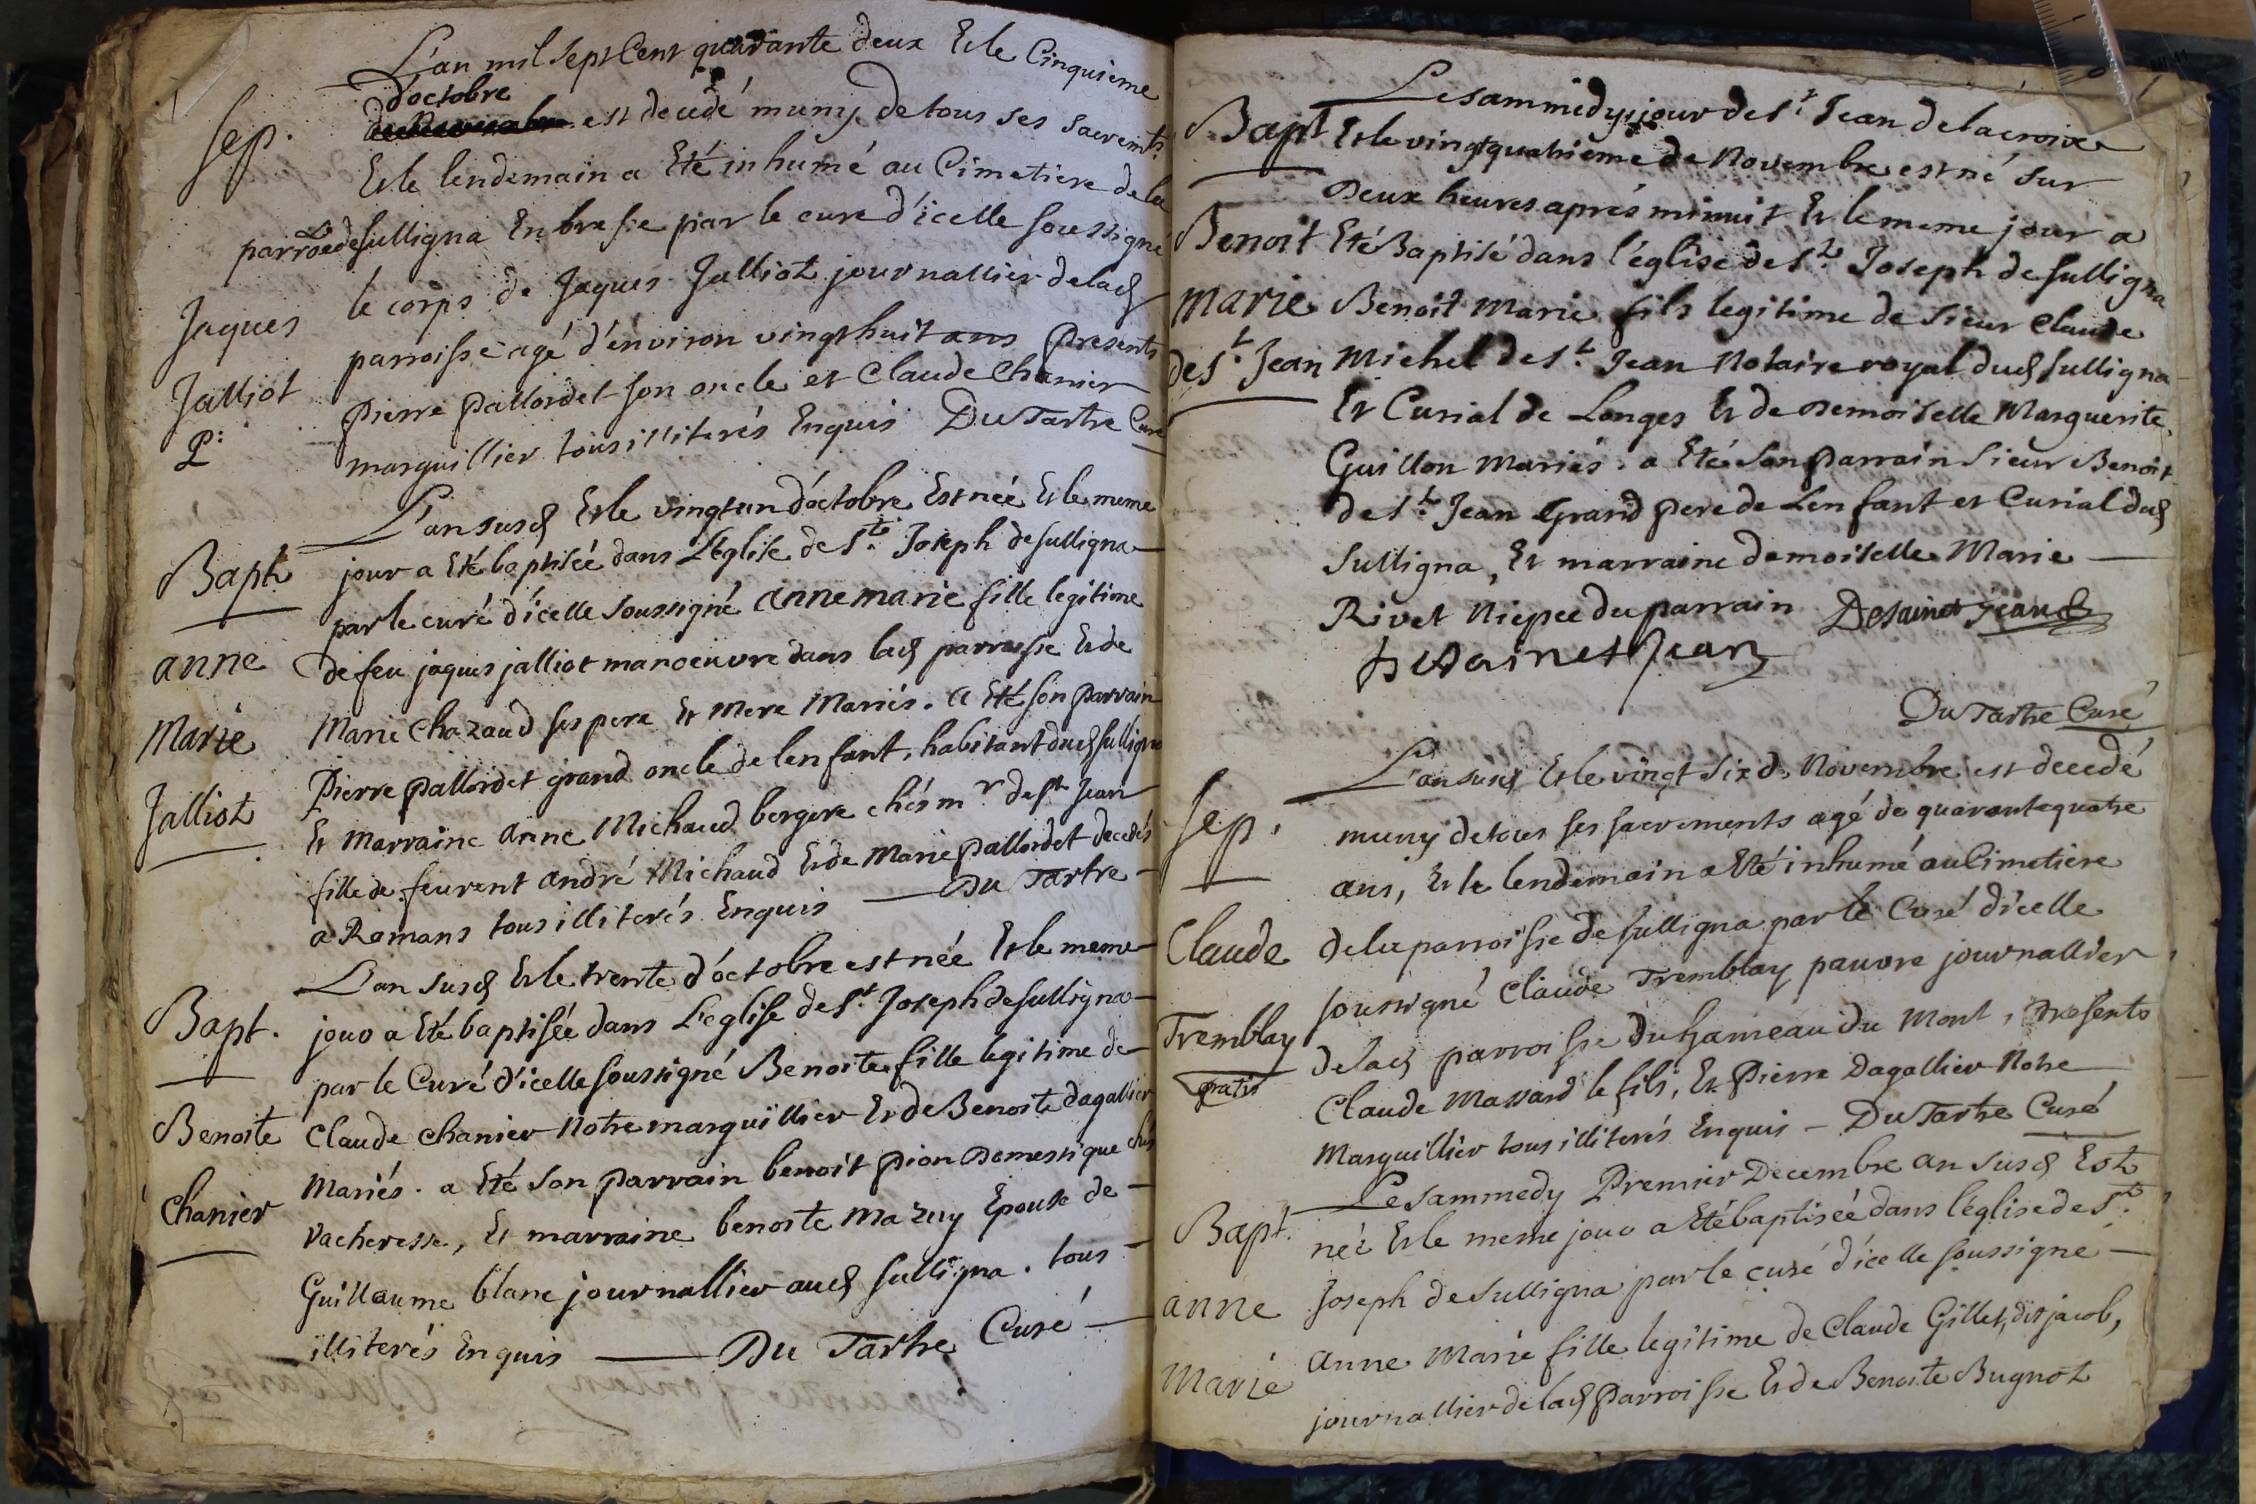 L'an mil sept Cent quarante deux Et le Cinquieme
d'octobre
Sep. est decedé muny de tous ses sacremts.
Et le lendemain a Eté inhumé au Cimetiere de la
parroe de sulligna En bresse par le curé d'icelle soussigné
Jaques le corps de Jaques Jalliot journallier de lad
Jalliot parroisse agé d'environ vingt huit ans presents
P: Pierre pallordet son oncle et Claude Chanier
marguillier tous illiterés Enquis Du Tartre Curé
L'an susd Et le vingt un d'octobre Est née Et le meme
Bapt jour a Eté baptisée dans L'eglise de St. Joseph de sulligna
par le curé d'icelle soussigné anne marie fille legitime
anne de feu jaques jalliot manoeuvre dans lad parroisse Et de
Marie Marie Chazaud ses pere Et Mere Mariés. a Eté son parrain
Jalliot Pierre pallordet grand oncle de lenfant, habitant dud sulligna
Et Marraine anne Michaud bergere chés mr de st Jean
fille de feurent andré Michaud Et de Marie pallordet decedés
a Romans tous illiterés Enquis Du Tartre
L'an susd Et le trente d'octobre est née Et le meme
Bapt. jour a Eté baptisée dans L'eglise de St. Joseph de sulligna
par le Curé d'icelle soussigné Benoite fille legitime de
Benoite Claude chanier Notre marguillier Et de Benoite dagallier
Chanier Mariés. a Eté son parrain benoit pion Domestique chés
vacheresse, Et marraine benoite mazuy Epouse de
Guillaume blanc journallier aud sulligna. tous
illiterés Enquis Du Tartre Curé
Le sammedy jour de St. Jean de la croix
Bapt Et le vingtquatrieme de Novembre est né sur
Deux heures aprés minuit Et le meme jour a
Benoit Eté Baptisé dans l'église de St. Joseph de sulligna
marie Benoit Marie fils legitime de sieur Claude
de St. Jean Michel de St. Jean Notaire royal dud sulligna
Et Curial de Longes Et de Demoiselle Marguerite
Guillon mariés. a Eté son parrain Sieur Benoit
de St. Jean Grand pere de Lenfant et Curial dud
Sulligna, Et marraine demoiselle Marie
Rivet Niepce du parrain Desainct jean
Desainct Jean
Du Tartre Curé
L'an susd Et le vingt six de Novembre est decedé
Sep. muny de tous ses sacrements agé de quarante quatre
ans, Et le lendemain a Eté inhumé au Cimetiere
Claude de la parroisse de sulligna par le Curé d'icelle
soussigné Claude Tremblay pauvre journallier
Tremblay de lad parroisse du hameau du Mont, presents
gratis Claude Massard le fils, Et Pierre Dagallier Notre
Marguillier tous illiterés Enquis - Du Tartre Curé
Le sammedy Premier Decembre an susd Est
Bapt. née Et le meme jour a Eté baptisée dans l'église de St.
Joseph de Sulligna par le curé d'icelle soussigné
anne Anne Marie fille legitime de Claude Gillet, dit jacob,
Marie journallier de lad Parroisse Et de Benoite Bugnot